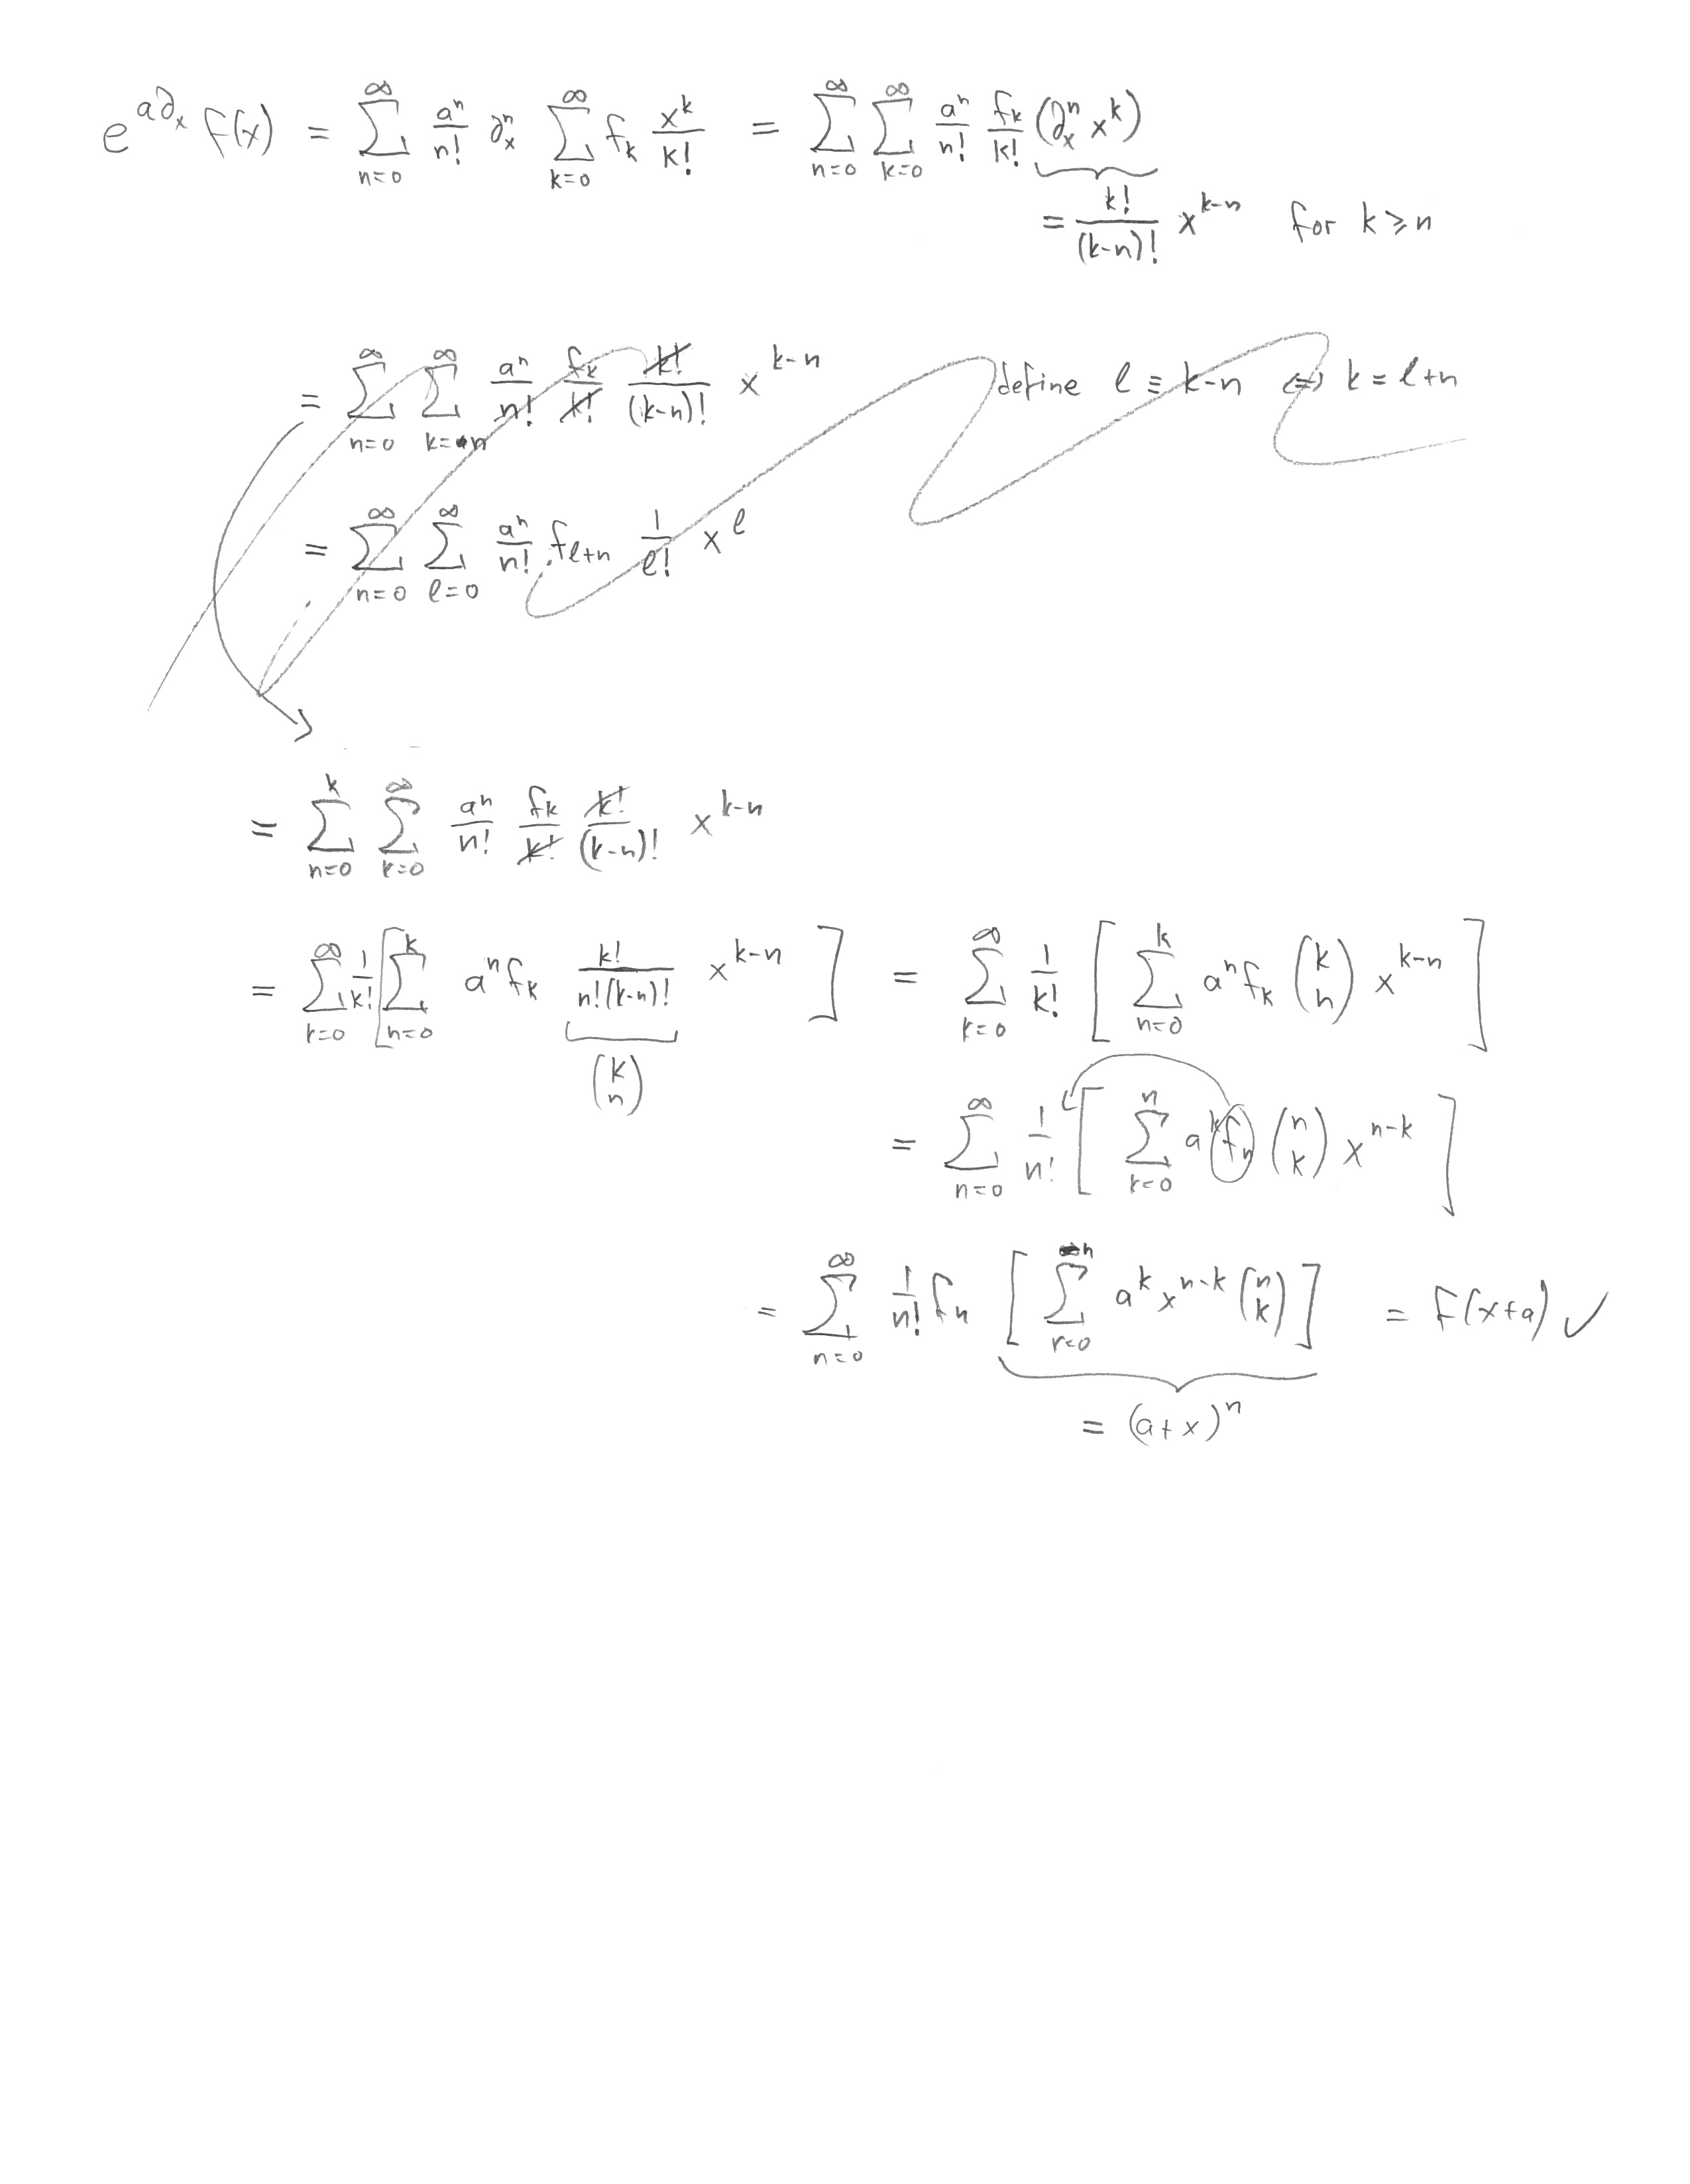 e^{a∂_x} f(x) = \sum_{n=0}^{∞} \frac{a^n}{n!} ∂_x^n \sum_{k=0}^{∞} f_k \frac{x^k}{k!} = \sum_{n=0}^{∞} \sum_{k=0}^{∞} \frac{a^n}{n!} \frac{f_k}{k!} (∂_x^n x^k)
= \frac{k!}{(k-n)!} x^{k-n} for k ⩾ n
= \sum_{n=0}^{∞} \sum_{k=n}^{∞} \frac{a^n}{n!} \frac{f_k}{k!} \frac{k!}{(k-n)!} x^{k-n} define ℓ ≡ k-n ⇔ k = ℓ+n
= \sum_{n=0}^{∞} \sum_{ℓ=0}^{∞} \frac{a^n}{n!} f_{ℓ+n} \frac{1}{ℓ!} x^ℓ
= \sum_{n=0}^{k} \sum_{k=0}^{∞} \frac{a^n}{n!} \frac{f_k}{k!} \frac{k!}{(k-n)!} x^{k-n}
= \sum_{k=0}^{∞} \frac{1}{k!} [ \sum_{n=0}^{k} a^n f_k \frac{k!}{n!(k-n)!} x^{k-n} ] = \sum_{k=0}^{∞} \frac{1}{k!} [ \sum_{n=0}^{k} a^n f_k \binom{k}{n} x^{k-n} ]
\binom{k}{n}
= \sum_{n=0}^{∞} \frac{1}{n!} [ \sum_{k=0}^{n} a^k f_n \binom{n}{k} x^{n-k} ]
= \sum_{n=0}^{∞} \frac{1}{n!} f_n [ \sum_{k=0}^{n} a^k x^{n-k} \binom{n}{k} ] = f(x+a) ✓
= (a+x)^n